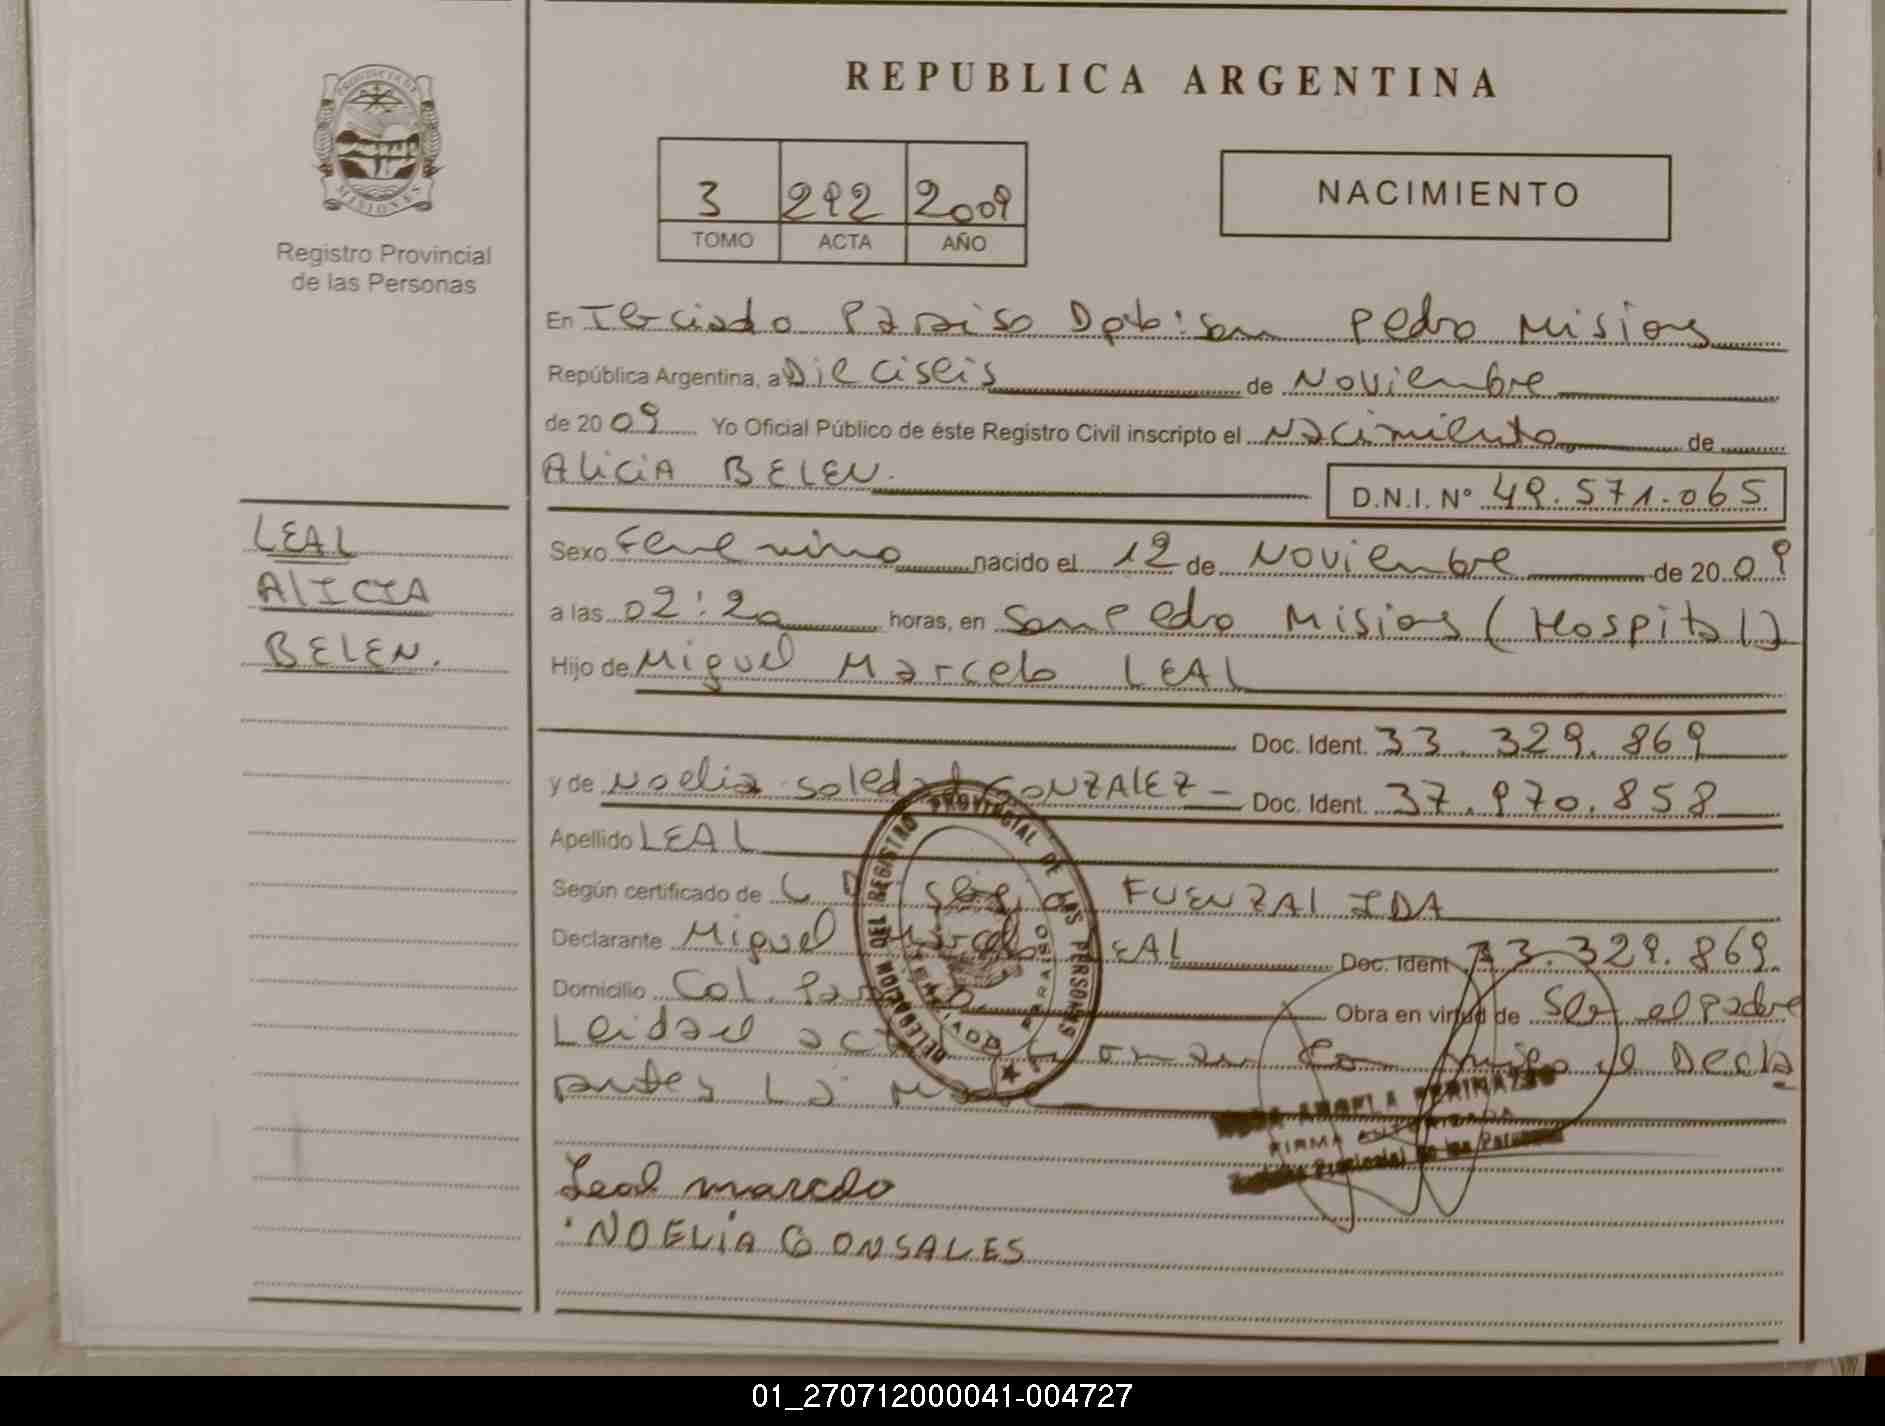 PROVINCIA DE
MISIONES
Registro Provincial
de las Personas
REPUBLICA ARGENTINA
3 292 2009
TOMO ACTA AÑO
NACIMIENTO
En Terciado Paraiso Dpto: San Pedro Misiones
República Argentina, a Dieciseis de Noviembre
de 2009 Yo Oficial Público de éste Registro Civil inscripto el Nacimiento de
Alicia BELEN.
D.N.I. N° 49.571.065
LEAL
ALICIA
BELEN.
Sexo Femenino nacido el 12 de Noviembre de 2009
a las 02:20 horas, en San Pedro Misiones (Hospital)
Hijo de Miguel Marcelo LEAL
Doc. Ident. 33.329.869
y de Noelia Soledad GONZALEZ - Doc. Ident. 37.970.858
Apellido LEAL
Según certificado de FUENZALIDA
Declarante Miguel Marcelo LEAL Doc. Ident. 33.329.869
Domicilio Col. Obra en virtud de Ser el padre
Leida el acta conmigo el Decla
DELEGACION DEL REGISTRO PROVINCIAL DE LAS PERSONAS
ANGELA
FIRMA AUTORIZADA
Provincial de las Personas
Leal marcelo
NOELIA GONSALES
01_270712000041-004727